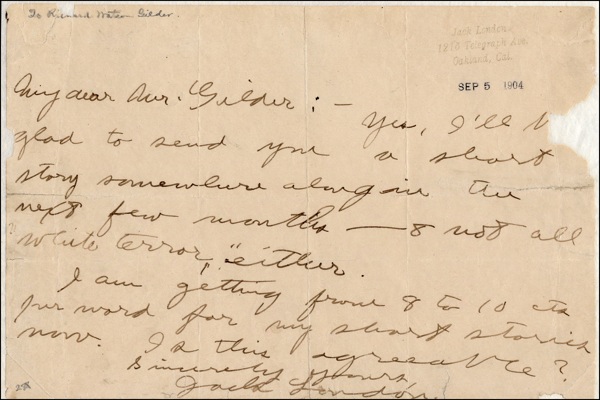 To Richard Watson Gilder.
Jack London,
1216 Telegraph Ave.
Oakland, Cal.
SEP 5 1904
My dear Mr. Gilder: –
Yes, I'll b
glad to send you a short
story somewhere along in the
next few months — & not all
"white terror," either.
I am getting from 8 to 10 cts
per word for my short stories
now. Is this agreeable?
Sincerely yours,
Jack London.